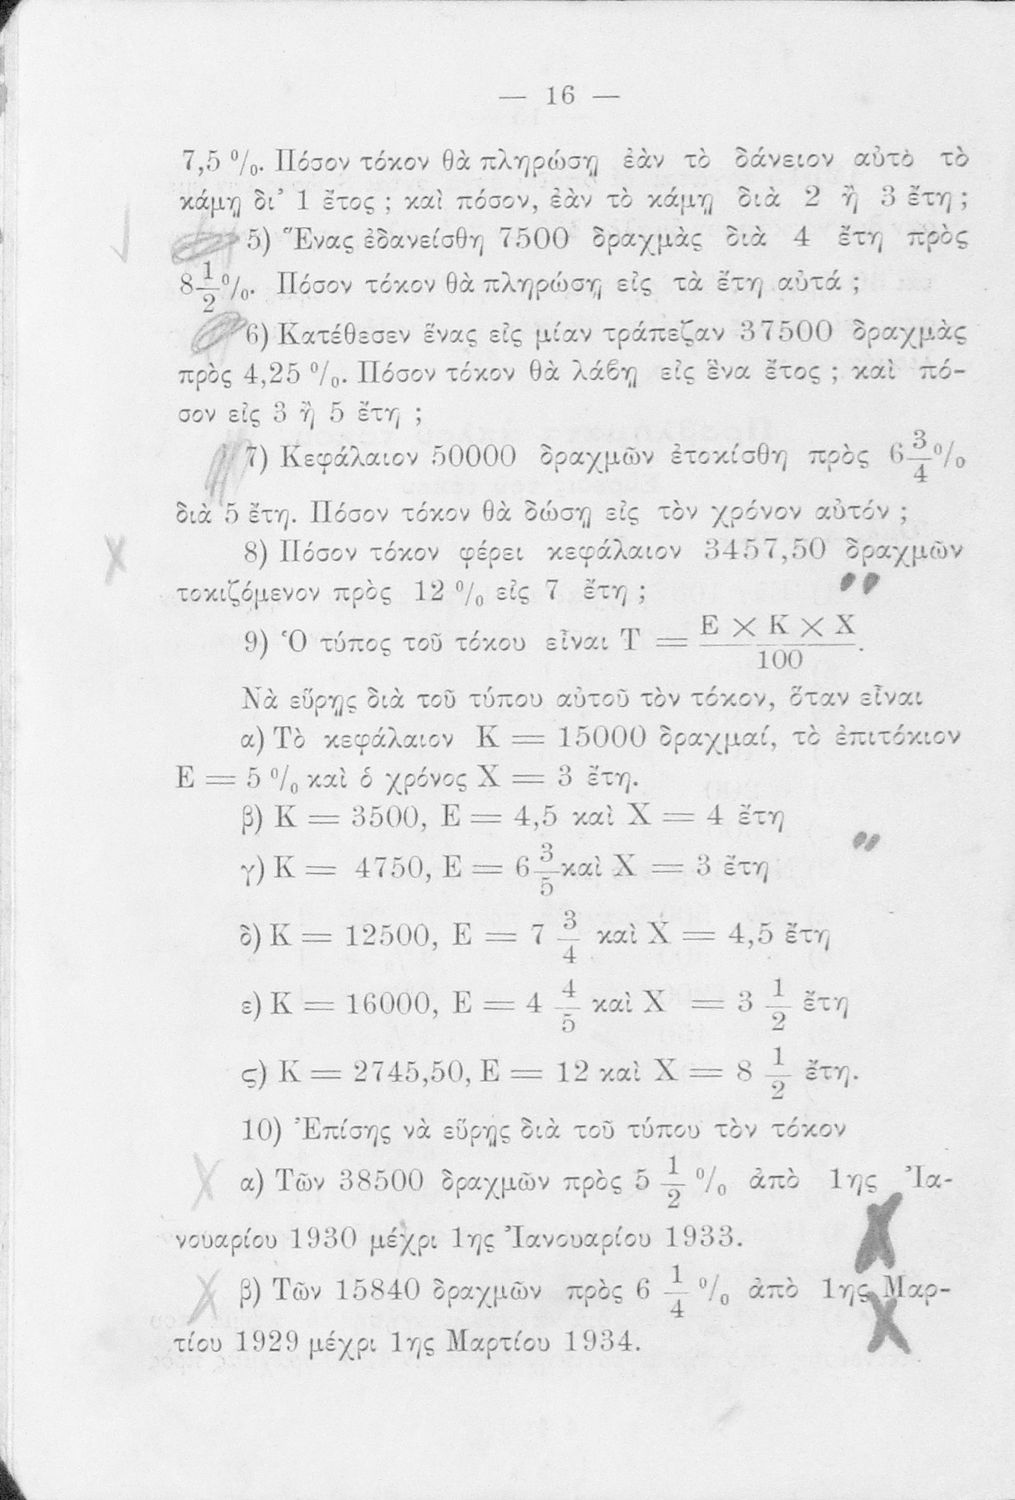 — 16 —
7,5 %. Πόσον τόκον θὰ πληρώσῃ ἐὰν τὸ δάνειον αὐτὸ τὸ
κάμῃ δι’ 1 ἔτος ; καὶ πόσον, ἐὰν τὸ κάμῃ διὰ 2 ἢ 3 ἔτη ;
5) Ἕνας ἐδανείσθη 7500 δραχμὰς διὰ 4 ἔτη πρὸς
8 1/2 %. Πόσον τόκον θὰ πληρώσῃ εἰς τὰ ἔτη αὐτά ;
6) Κατέθεσεν ἕνας εἰς μίαν τράπεζαν 37500 δραχμὰς
πρὸς 4,25 %. Πόσον τόκον θὰ λάβῃ εἰς ἓνα ἔτος ; καὶ πό-
σον εἰς 3 ἢ 5 ἔτη ;
7) Κεφάλαιον 50000 δραχμῶν ἐτοκίσθη πρὸς 6 3/4 %
διὰ 5 ἔτη. Πόσον τόκον θὰ δώσῃ εἰς τὸν χρόνον αὐτόν ;
8) Πόσον τόκον φέρει κεφάλαιον 3457,50 δραχμῶν
τοκιζόμενον πρὸς 12 % εἰς 7 ἔτη ;
9) Ὁ τύπος τοῦ τόκου εἶναι Τ = Ε × Κ × Χ / 100.
Νὰ εὕρῃς διὰ τοῦ τύπου αὐτοῦ τὸν τόκον, ὅταν εἶναι
α) Τὸ κεφάλαιον Κ = 15000 δραχμαί, τὸ ἐπιτόκιον
Ε = 5 % καὶ ὁ χρόνος Χ = 3 ἔτη.
β) Κ = 3500, Ε = 4,5 καὶ Χ = 4 ἔτη
γ) Κ = 4750, Ε = 6 3/5 καὶ Χ = 3 ἔτη
δ) Κ = 12500, Ε = 7 3/4 καὶ Χ = 4,5 ἔτη
ε) Κ = 16000, Ε = 4 4/5 καὶ Χ = 3 1/2 ἔτη
ς) Κ = 2745,50, Ε = 12 καὶ Χ = 8 1/2 ἔτη.
10) Ἐπίσης νὰ εὕρῃς διὰ τοῦ τύπου τὸν τόκον
α) Τῶν 38500 δραχμῶν πρὸς 5 1/2 % ἀπὸ 1ης Ἰα-
νουαρίου 1930 μέχρι 1ης Ἰανουαρίου 1933.
β) Τῶν 15840 δραχμῶν πρὸς 6 1/4 % ἀπὸ 1ης Μαρ-
τίου 1929 μέχρι 1ης Μαρτίου 1934.